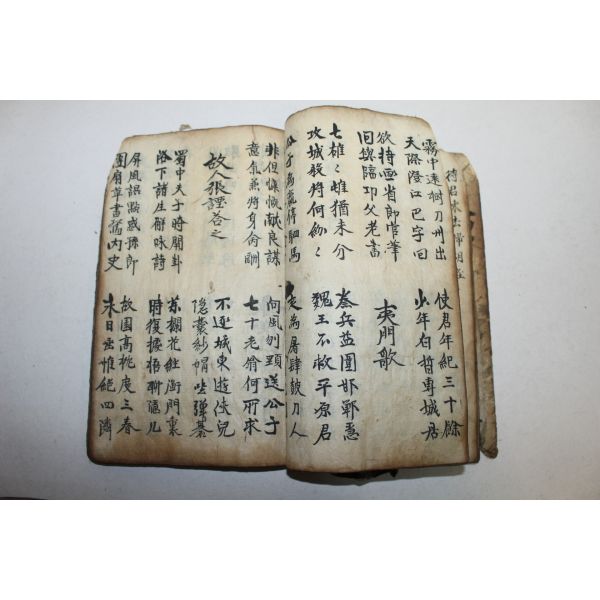 霧中遠樹刀州出
天際澄江巴字回
使君年紀三十餘
少年白皙專城居
欲持畫省郎官筆
回與臨邛父老書
夷門歌
七雄〻雌猶未分
攻城殺將何紛〻
秦兵益圍邯鄲急
魏王不救平原君
公子為嬴停駟馬
亥為屠肆鼓刀人
非但慷慨献良謀
意氣兼將身命酬
向風刎頸送公子
七十老翁何所求
故人張諲答之
不逐城東遊俠兒
隱囊紗帽坐彈碁
蜀中夫子時開卦
洛下諸生解咏詩
藥欄花徑衡門裏
時復據梧聊隱几
屏風誤點惑孫郎
團扇草書輕內史
故園高枕度三春
永日垂帷絕四隣